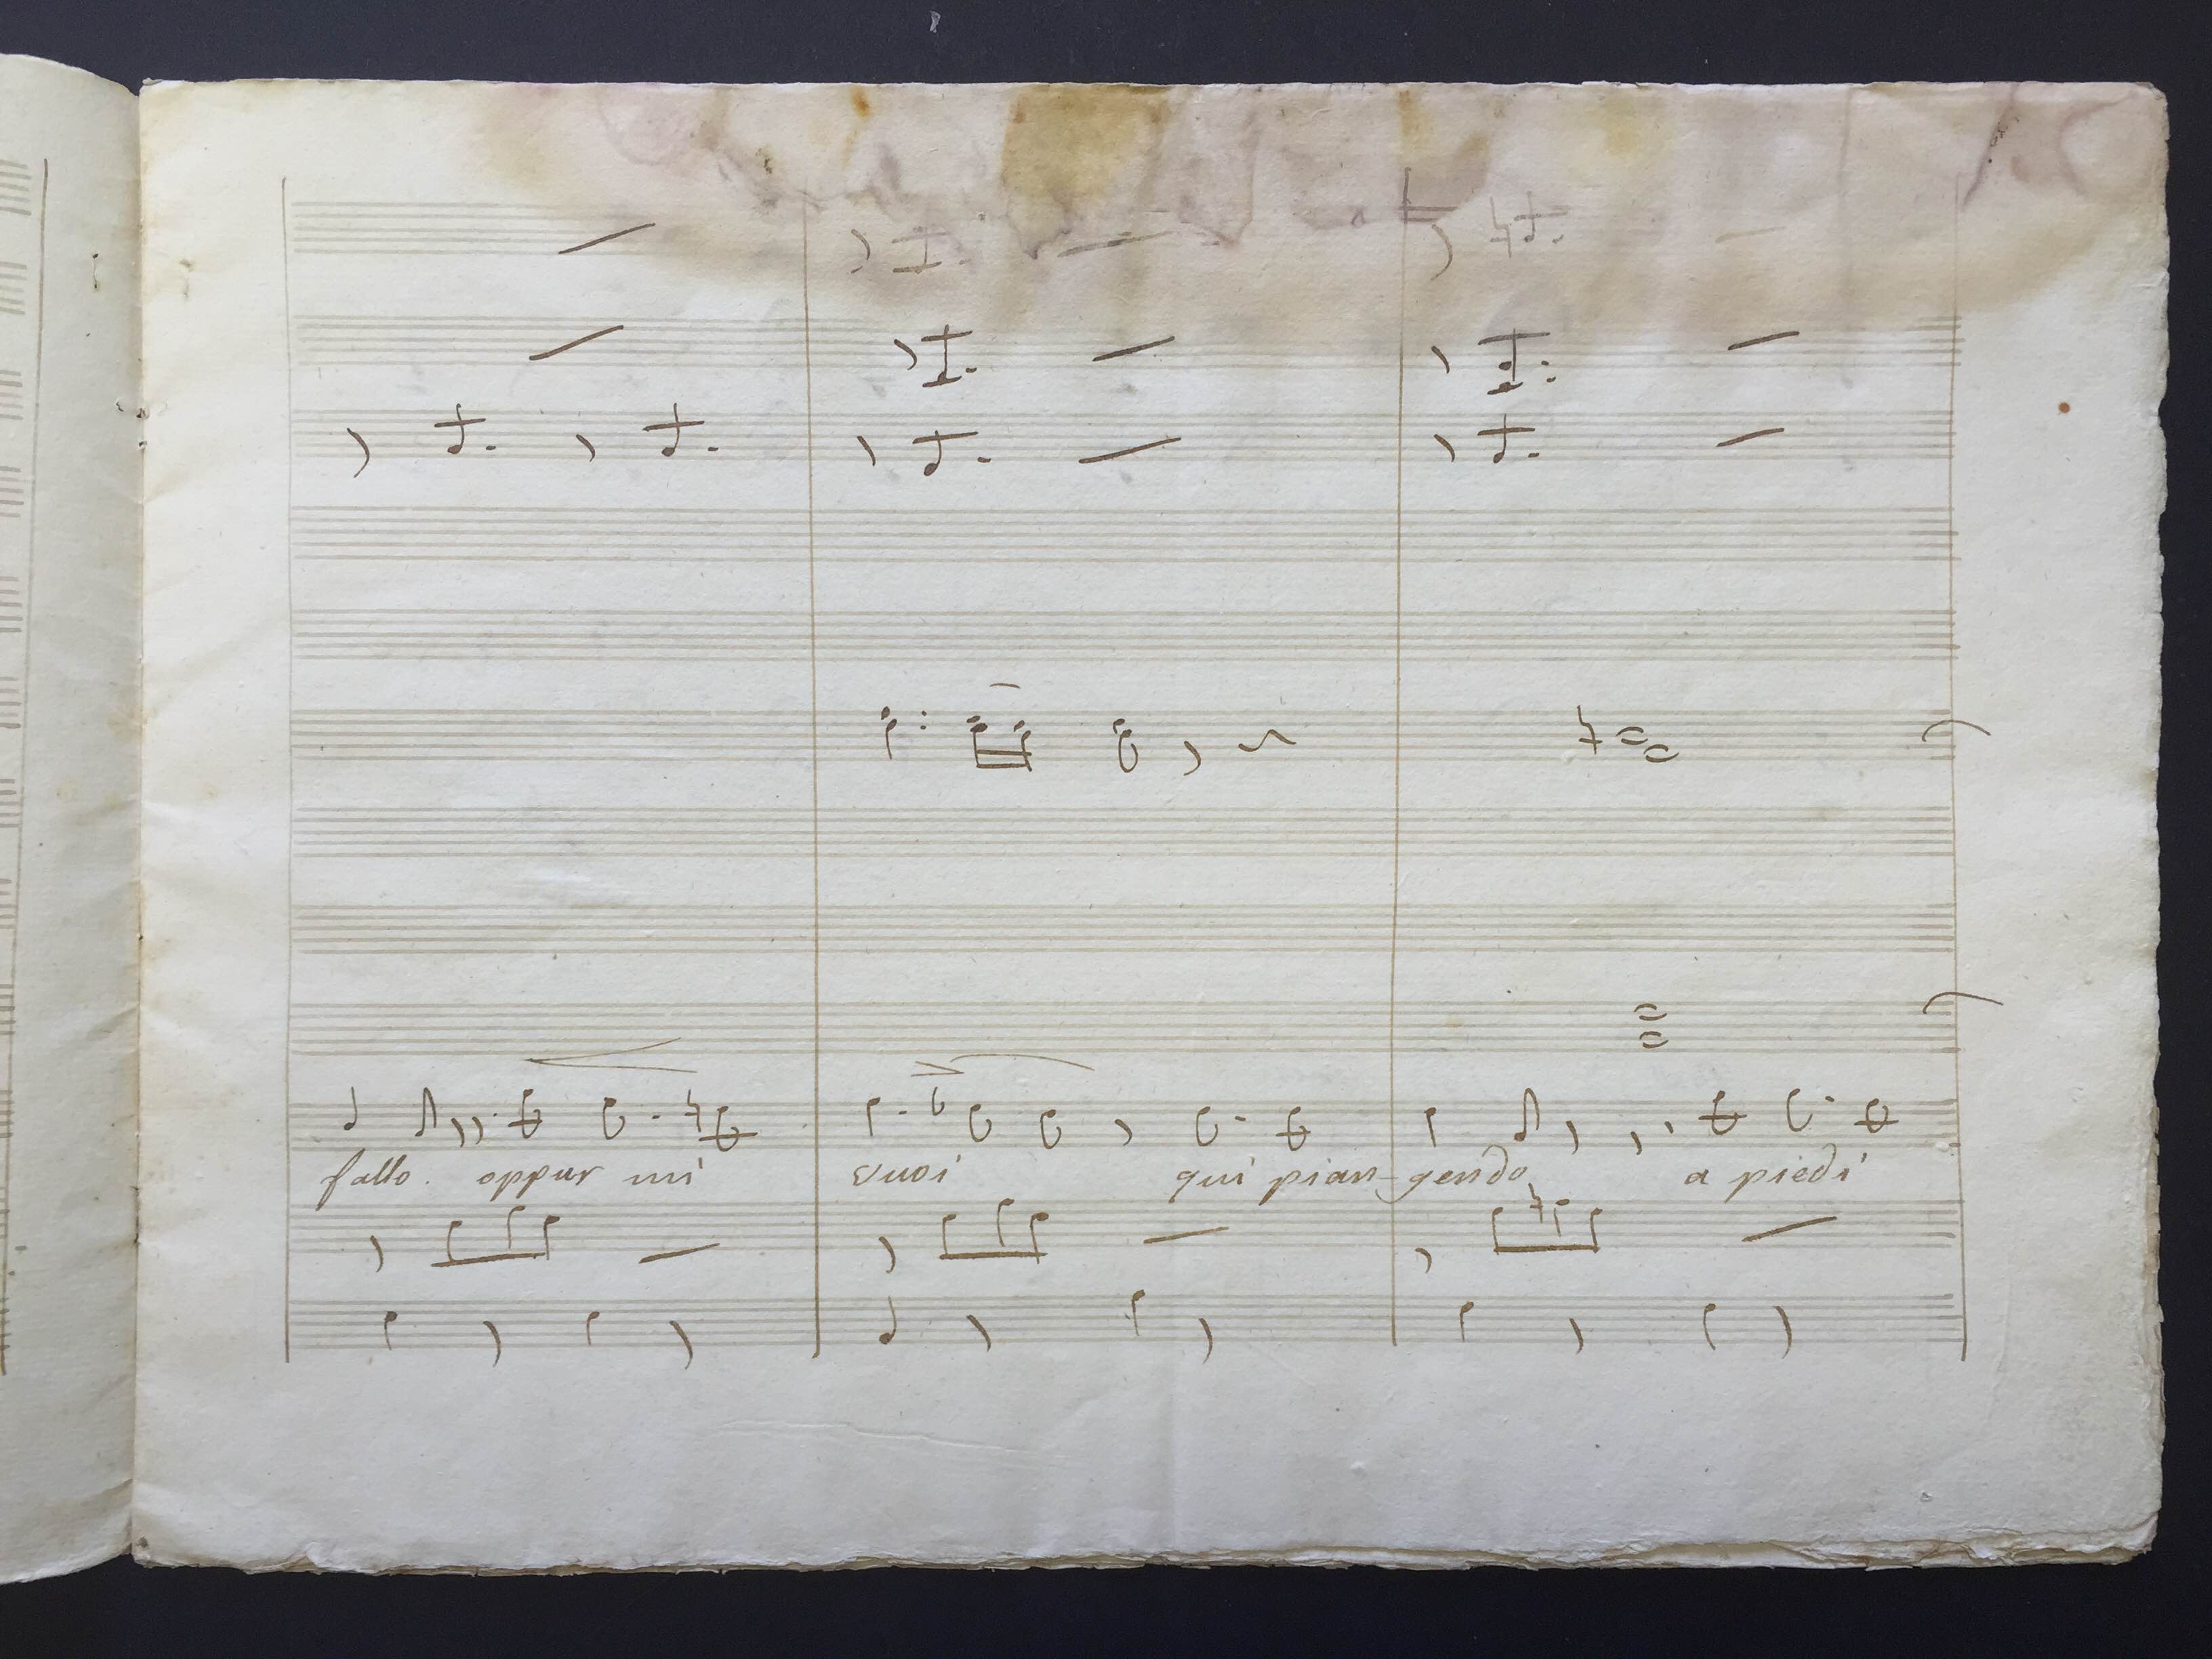 fallo. oppur mi suoi qui pian-gendo a piedi